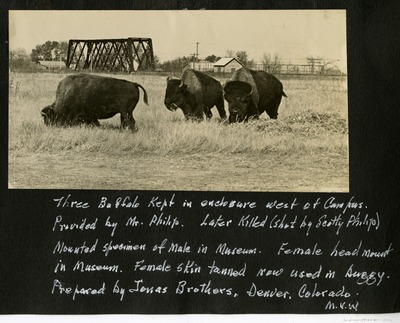 Three Buffalo Kept in enclosure west of Campus.
Provided by Mr. Philip. Later Killed (shot by Scotty Philip)
Mounted specimen of male in Museum. Female head mount
in Museum. Female skin tanned now used in buggy.
Prepared by Jonas Brothers, Denver, Colorado.
M.V.W